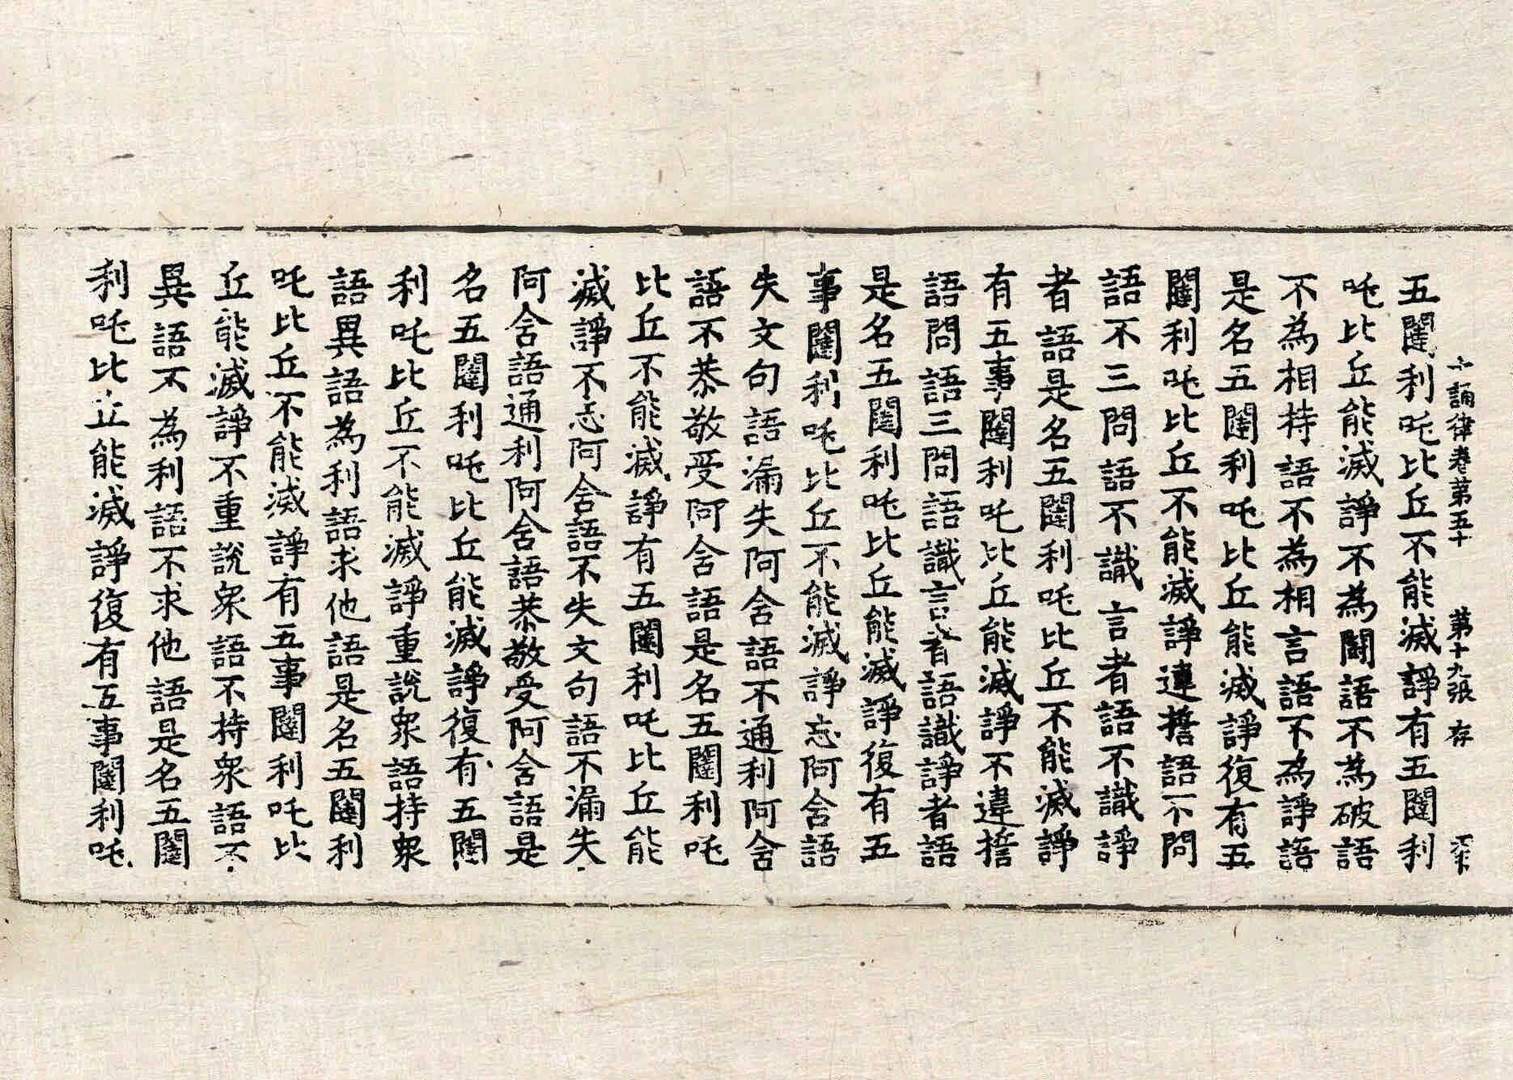 十誦律卷苐五十 苐十九張 存
五闥利吒比丘不能滅諍有五闥利
吒比丘能滅諍不為鬪語不為破語
不為相持語不為相言語不為諍語
是名五闥利吒比丘能滅諍復有五
闥利吒比丘不能滅諍違擔語不問
語不三問語不識言者語不識諍
者語是名五闥利吒比丘不能滅諍
有五事闥利吒比丘能滅諍不違擔
語問語三問語識言者語識諍者語
是名五闥利吒比丘能滅諍復有五
事闥利吒比丘不能滅諍忘阿含語
失文句語漏失阿含語不通利阿含
語不恭敬受阿含語是名五闥利吒
比丘不能滅諍有五闥利吒比丘能
滅諍不忘阿含語不失文句語不漏失
阿含語通利阿含語恭敬受阿含語是
名五闥利吒比丘能滅諍復有五闥
利吒比丘不能滅諍重說衆語持衆
語異語為利語求他語是名五闥利
吒比丘不能滅諍有五事闥利吒比
丘能滅諍不重說衆語不持衆語不
異語不為利語不求他語是名五闥
利吒比丘能滅諍復有五事闥利吒